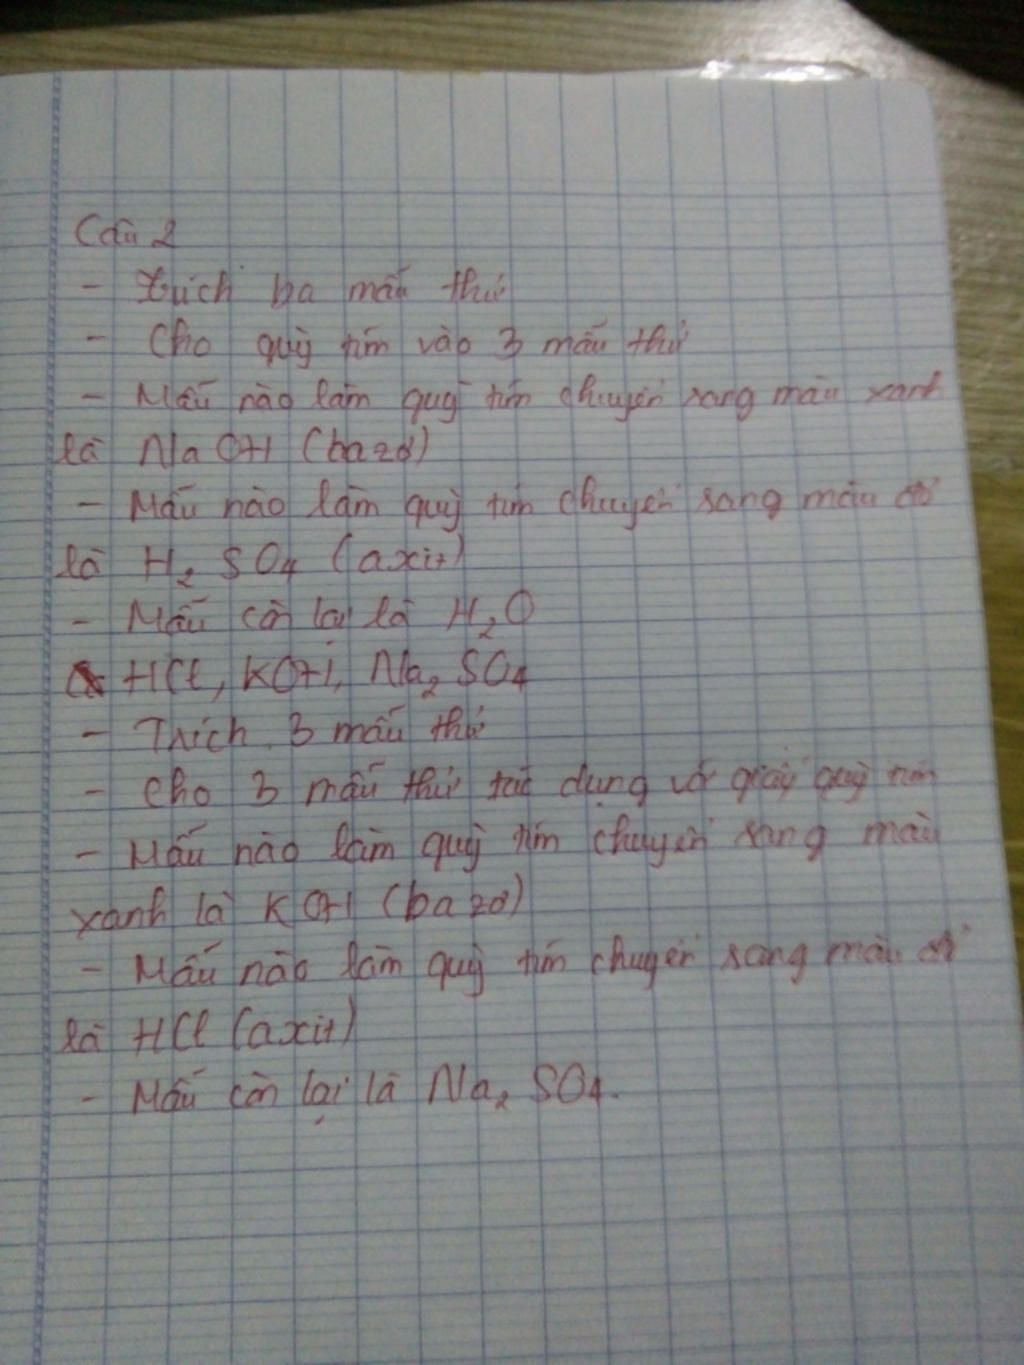 Câu 2
- Trích ba mẫu thử
- Cho quỳ tím vào 3 mẫu thử
- Mẫu nào làm quỳ tím chuyển sang màu xanh
là NaOH (bazơ)
- Mẫu nào làm quỳ tím chuyển sang màu đỏ
là H₂SO₄ (axit)
- Mẫu còn lại là H₂O
HCl, KOH, Na₂SO₄
- Trích 3 mẫu thử
- Cho 3 mẫu thử tác dụng với giấy quỳ tím
- Mẫu nào làm quỳ tím chuyển sang màu
xanh là KOH (bazơ)
- Mẫu nào làm quỳ tím chuyển sang màu đỏ
là HCl (axit)
- Mẫu còn lại là Na₂SO₄.